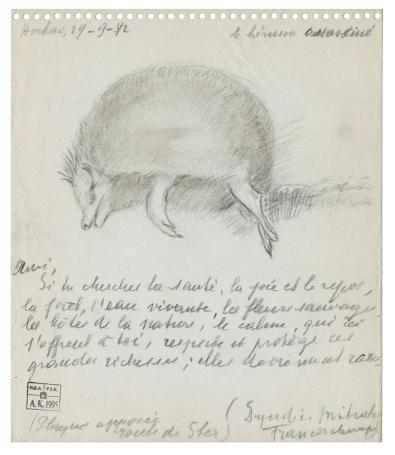 29-9-42
le hérisson assassiné
Ami,
Si tu cherches la santé, la joie et le repos,
la forêt, l'eau vivante, les fleurs sauvages,
les hôtes de la nature, le calme, qui ici
s'offrent à toi, respecte et protège ces
grandes richesses; elles deviennent rares
A.K. 1995
(Plaque apposée
route de
Syndic. Initiat.